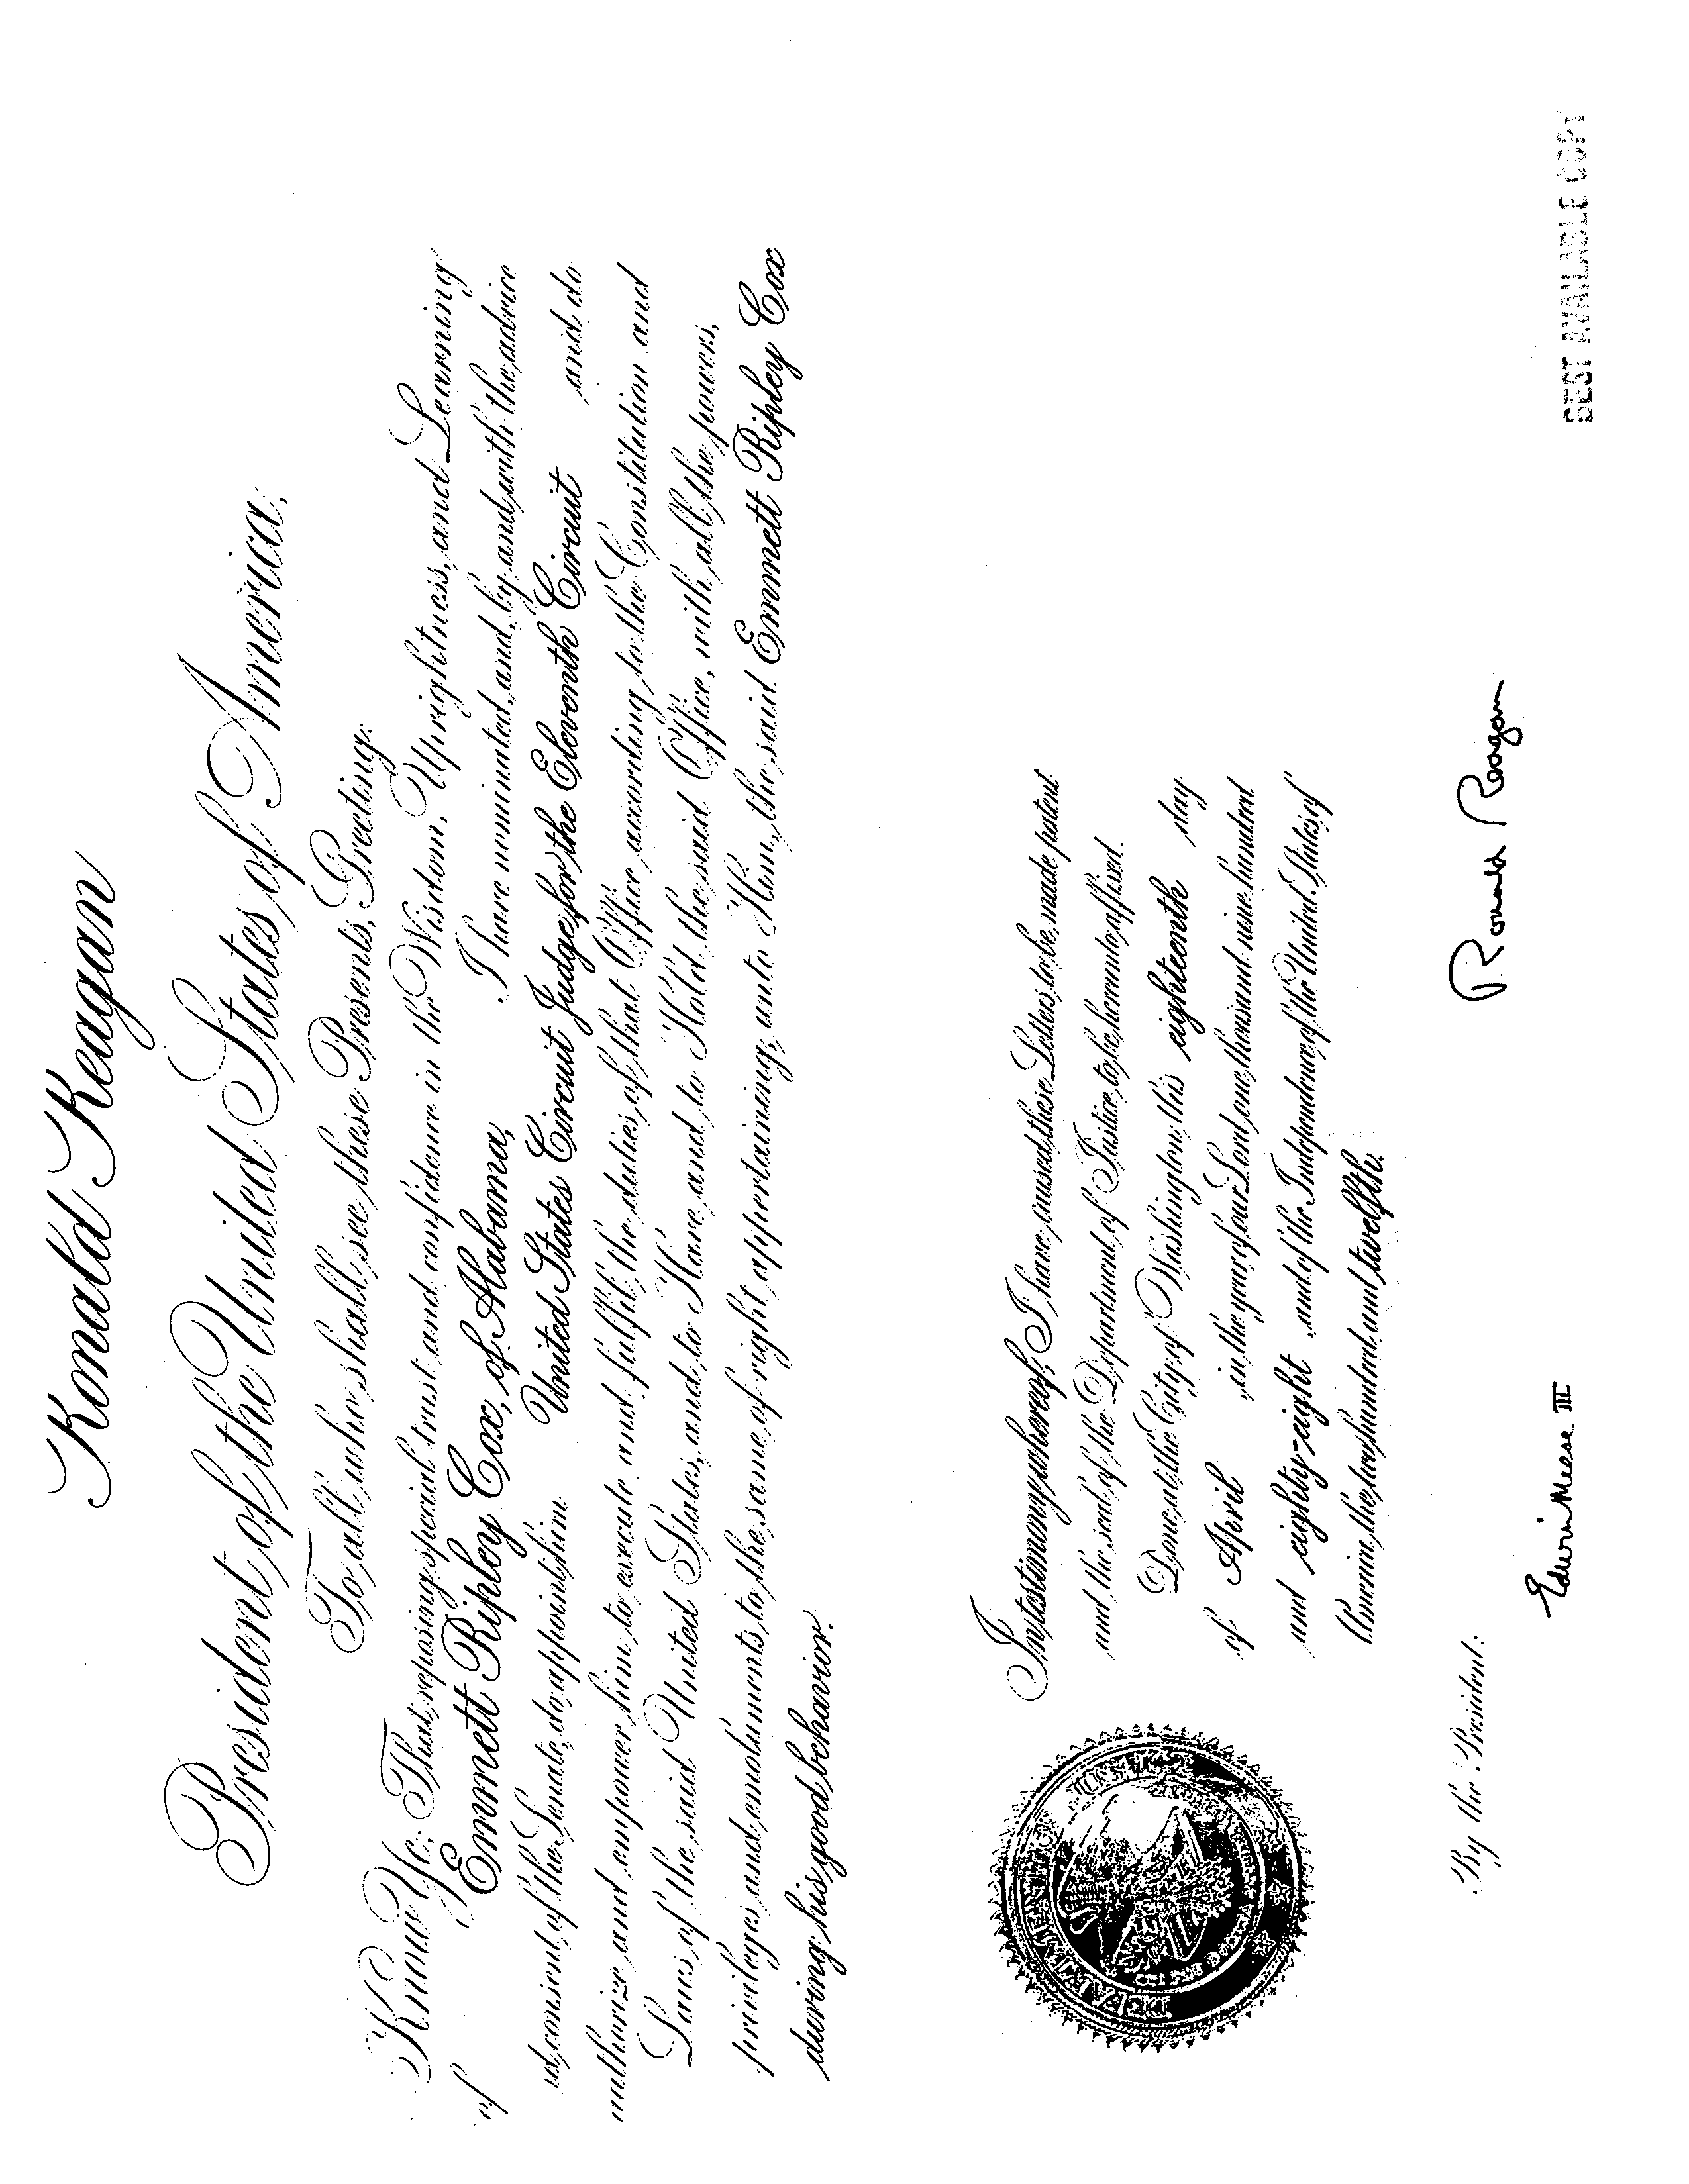 Ronald Reagan
President of the United States of America,
To all who shall see these Presents, Greeting:
Know Ye; That, reposing special trust and confidence in the Wisdom, Uprightness, and Learning
of Emmett Ripley Cox, of Alabama, I have nominated, and, by and with the advice
and consent of the Senate, do appoint him United States Circuit Judge for the Eleventh Circuit and do
authorize and empower him to execute and fulfil the duties of that Office according to the Constitution and
Laws of the said United States, and to Have and to Hold the said Office, with all the powers,
privileges and emoluments to the same of right appertaining, unto Him, the said Emmett Ripley Cox
during his good behavior.
In testimony whereof, I have caused these Letters to be made patent
and the seal of the Department of Justice to be hereunto affixed.
Done at the City of Washington this eighteenth day
of April in the year of our Lord one thousand nine hundred
and eighty-eight and of the Independence of the United States of
America the two hundred and twelfth.
Ronald Reagan
By the President:
Edwin Meese III
BEST AVAILABLE COPY